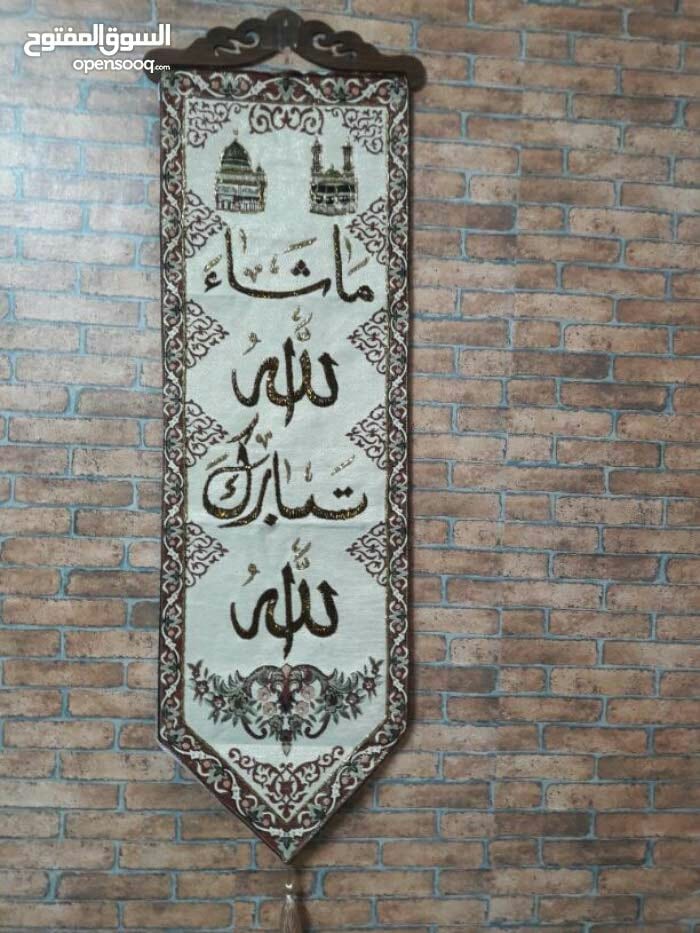 السوق المفتوح
opensooq.com
مَا شَاءَ
اللّٰهُ
تَبَارَكَ
اللّٰهُ